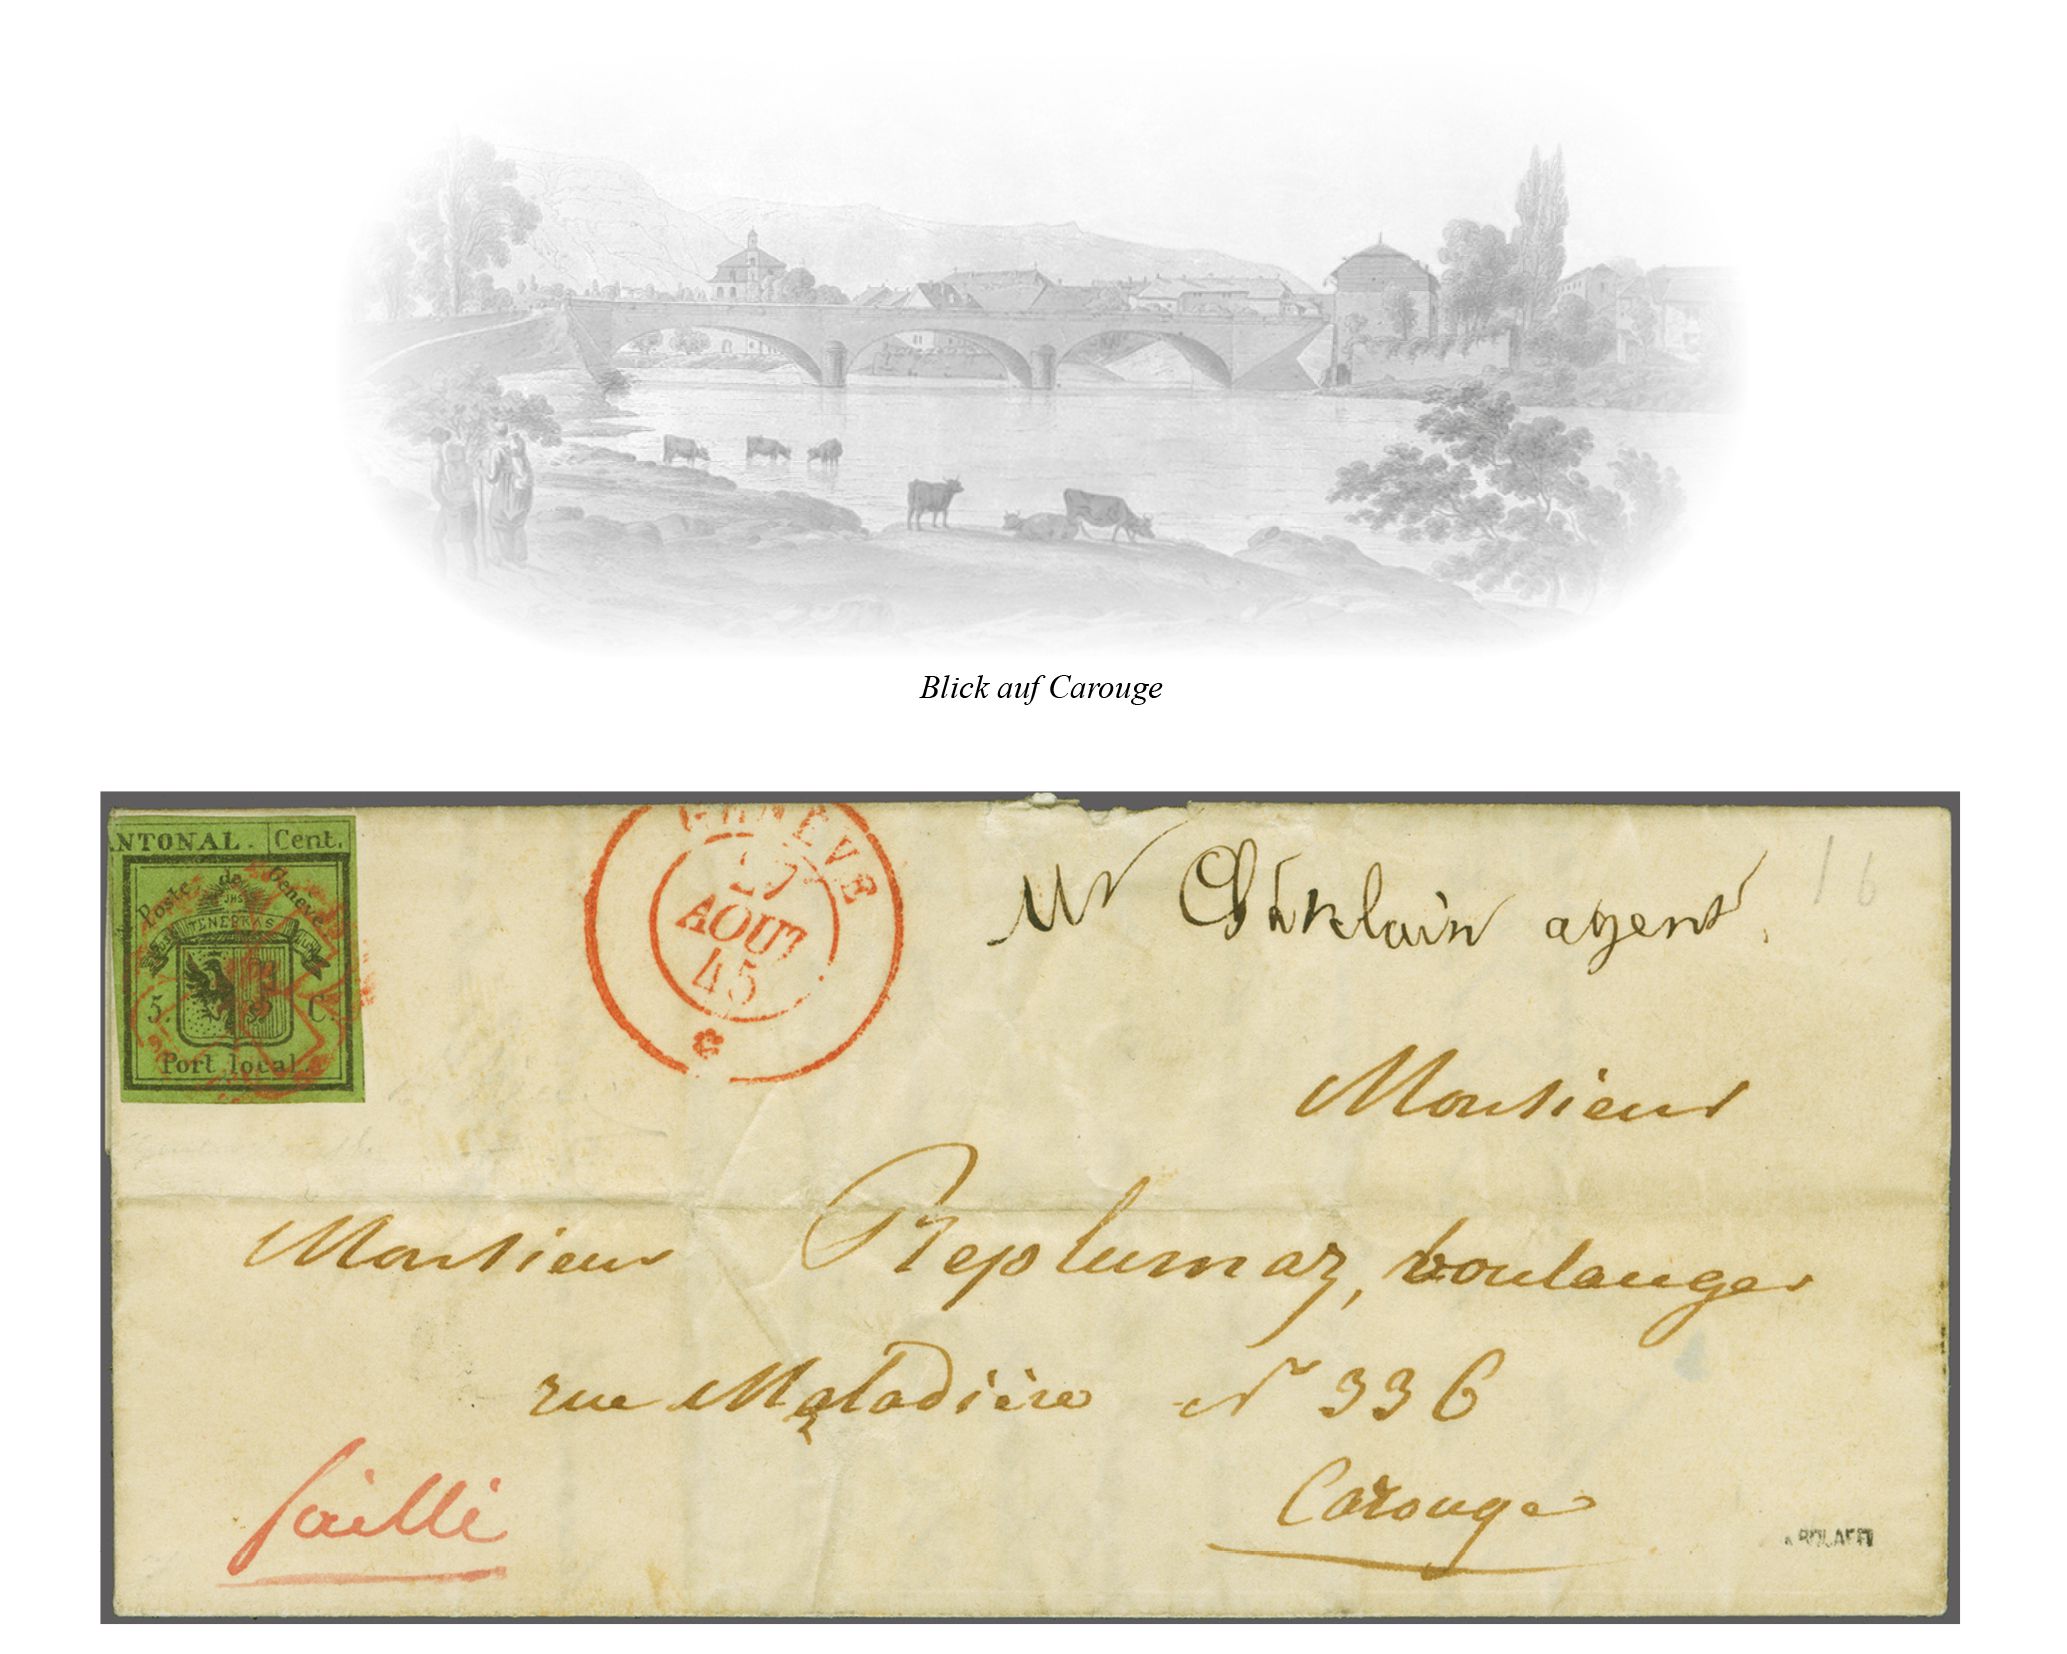 Blick auf Carouge
NTONAL. Cent.
Poste de Genève
JHS
TENEBRAS
5. C.
Port local.
GENÈVE
AOUT
45
Mr agent
Monsieur
Monsieur Replumaz, boulanger
rue Maladière No 336
Carouge
failli
16